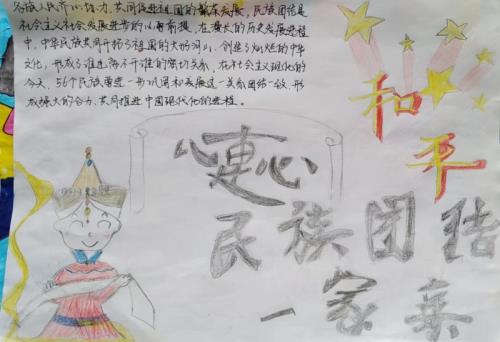 各族人民齐心协力、共同促进祖国的繁荣发展，民族团结是
社会主义社会发展进步的必要前提，在漫长的历史发展进程
中，中华民族共同开拓了祖国的大好河山，创造了灿烂的中华
文化，形成了谁也离不开谁的密切关系，在社会主义现代化的
今天，56个民族要进一步巩固和发展这一关系团结一致，形
成强大的合力，共同推进中国现代化的进程。
和平
“心連心
民族团结
一家亲